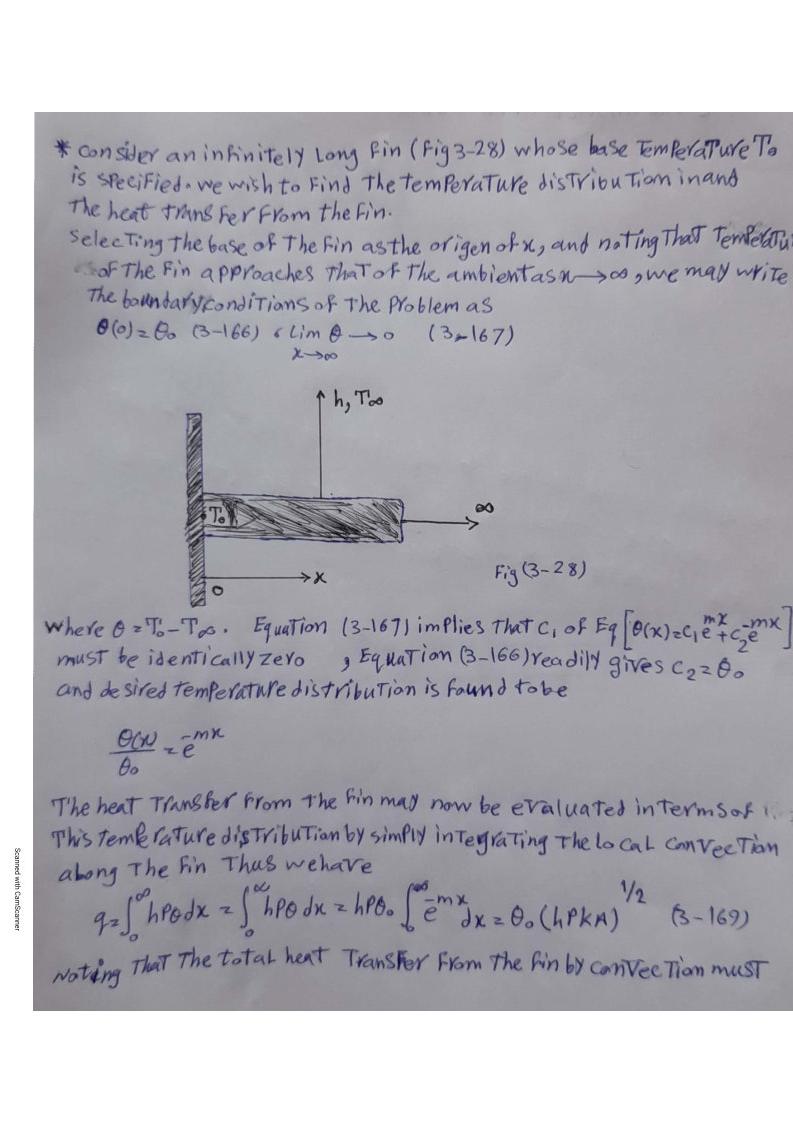 * Consider an infinitely Long fin (Fig 3-28) whose base Temperature T₀
is specified. we wish to Find The temperature distribution in and
The heat transfer From the Fin.
Selecting The base of The Fin as the origen of x, and noting That Temperatu
of The Fin approaches That of The ambient as x → ∞, we may write
The boundary conditions of The Problem as
θ(0) = θ₀ (3-166) , Lim θ → 0 (3-167)
x→∞
h, T∞
T₀
∞
x
0
Fig (3-28)
where θ = T₀ - T∞. Equation (3-167) implies That C₁ of Eq [θ(x) = C₁e^mx + C₂e^-mx]
must be identically zero , Equation (3-166) readily gives C₂ = θ₀
and desired temperature distribution is found to be
θ(x)/θ₀ = e^-mx
The heat Transfer From The Fin may now be evaluated in terms of
This temperature distribution by simply integrating The local convection
along The Fin Thus we have
q = ∫₀^∞ hPθ dx = ∫₀^∞ hPθ dx = hPθ₀ ∫₀^∞ e^-mx dx = θ₀ (hPkA)^1/2 (3-169)
Noting That The total heat Transfer From The fin by convection must
Scanned with CamScanner